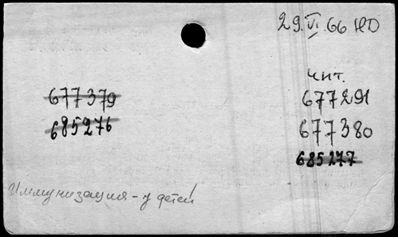 29.VI.66 НО
677379
685276
чит.
677291
677380
685277
Иммунизация - у детей